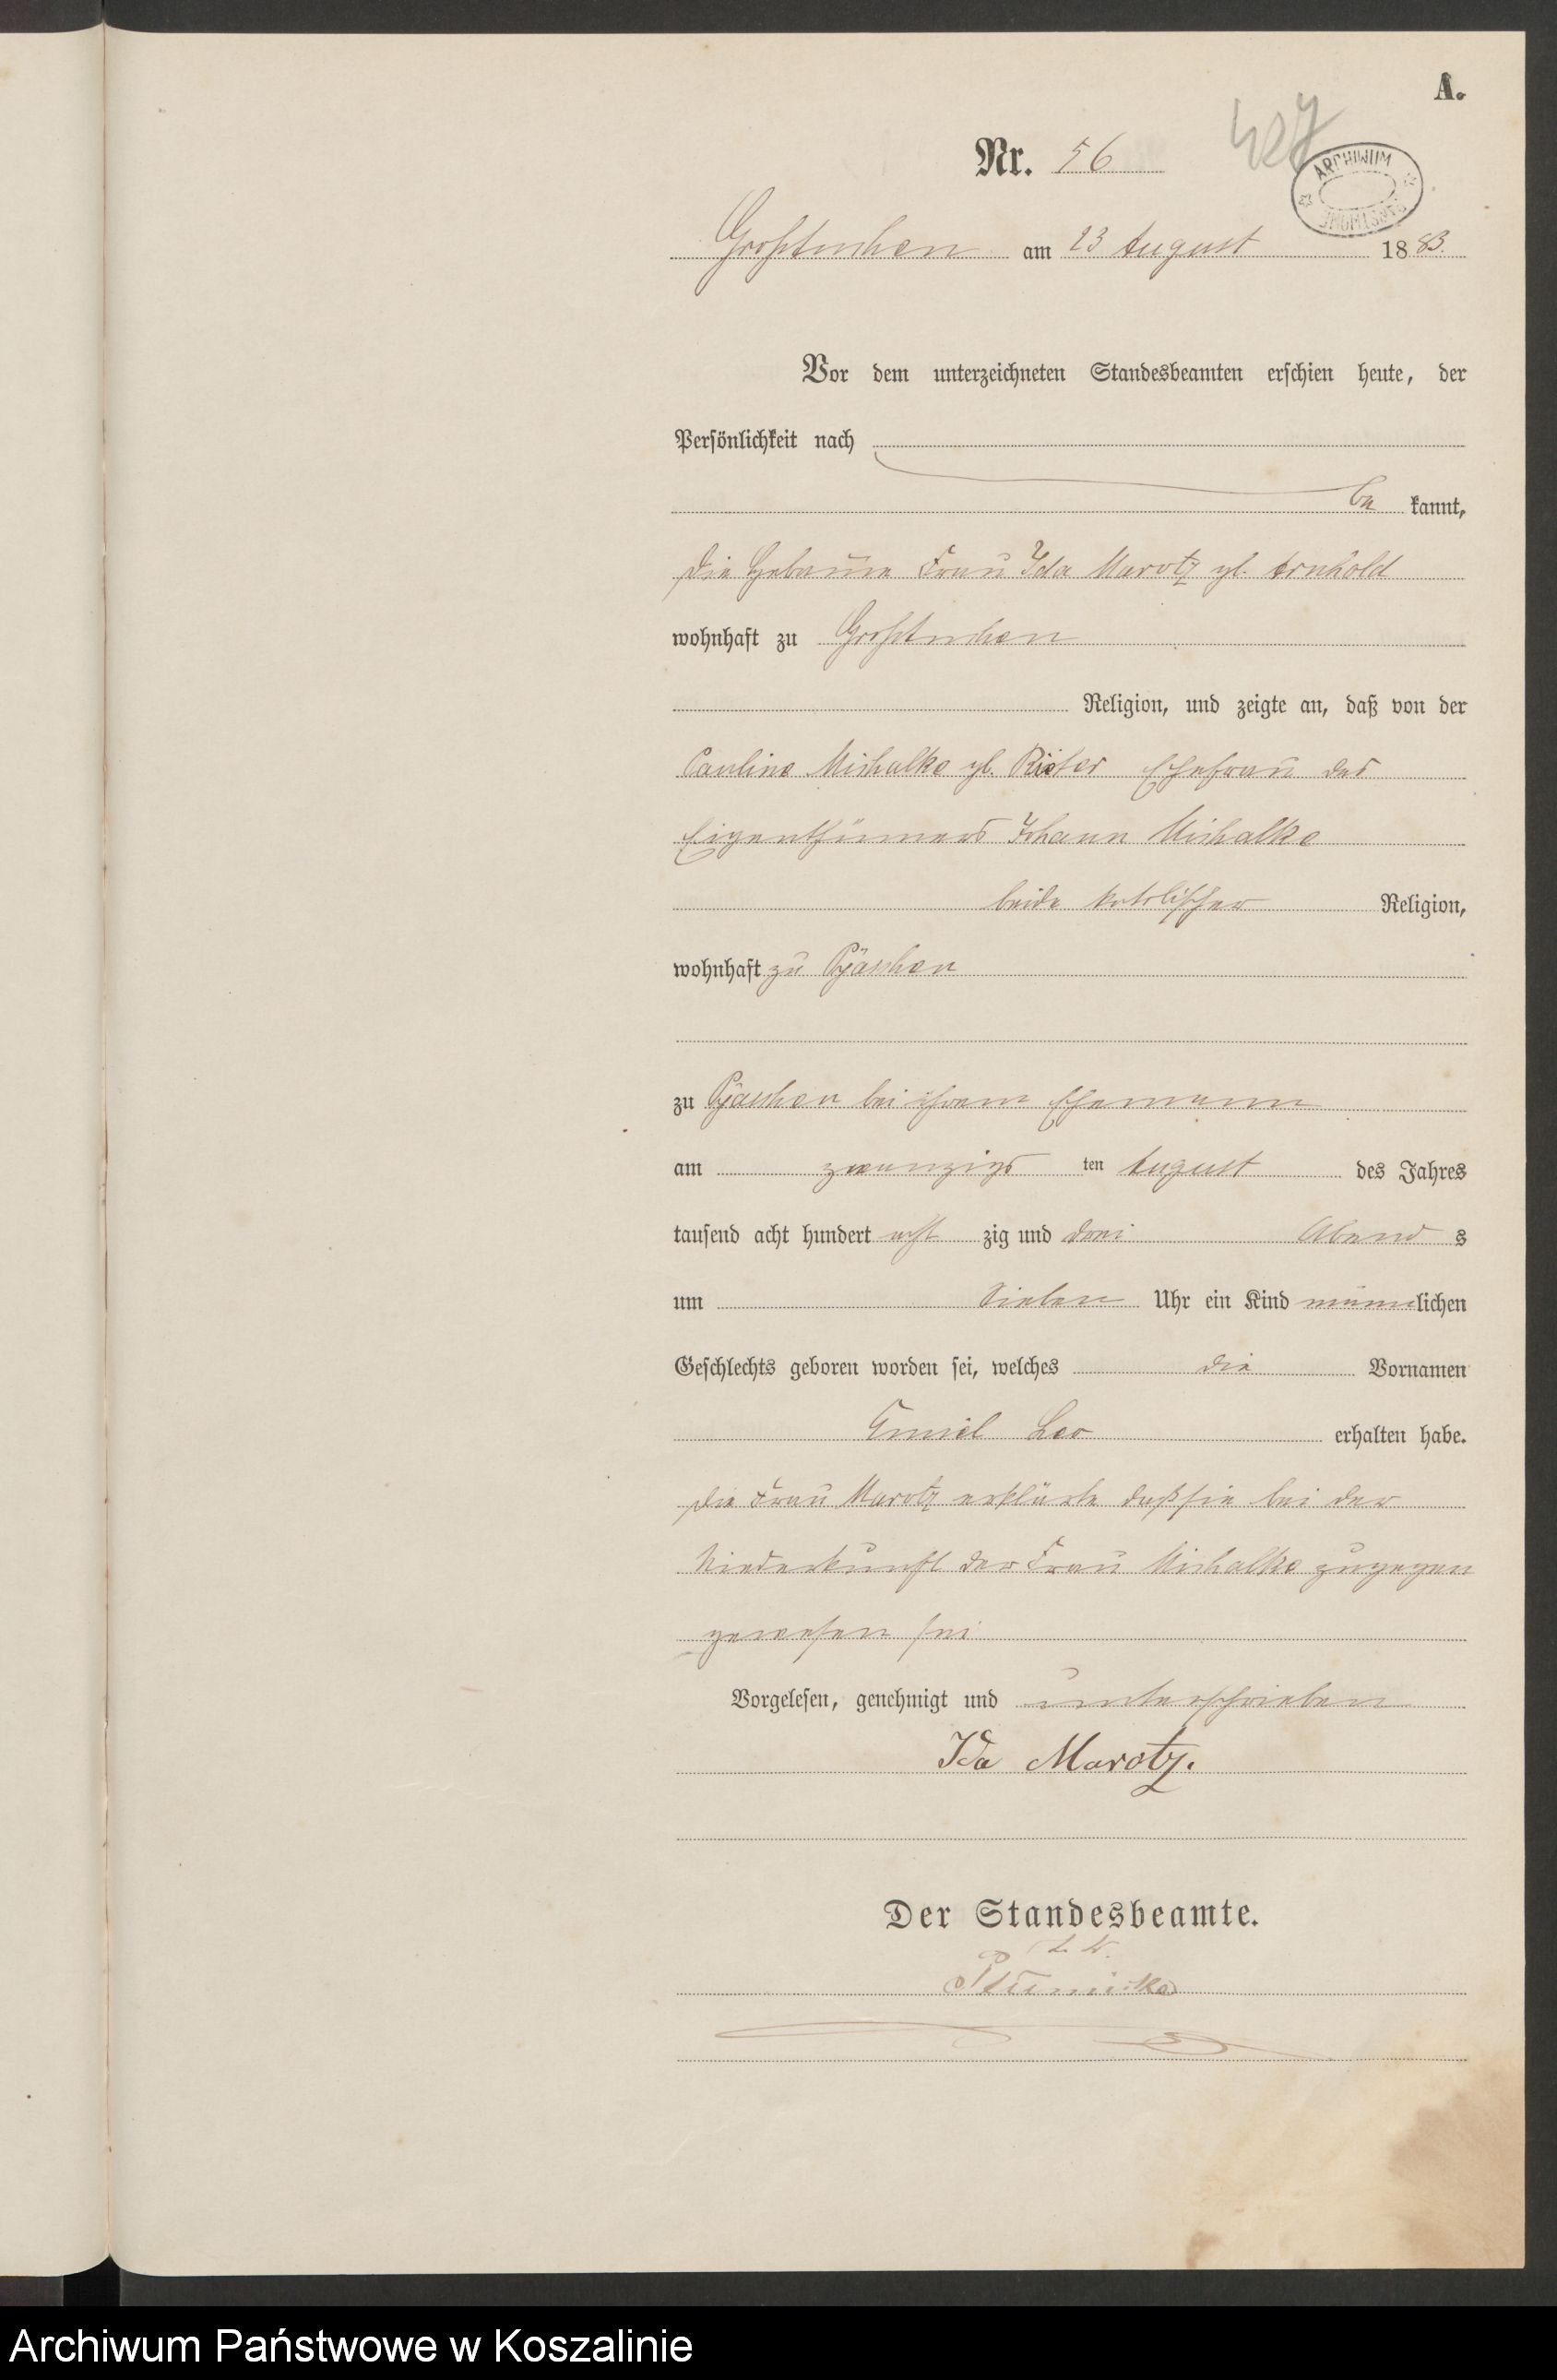 A.
427
Nr. 56
ARCHIWUM
Großtuchen am 23 August 1883.
Vor dem unterzeichneten Standesbeamten erschien heute, der
Persönlichkeit nach
be kannt,
die Hebamme Frau Ida Marotz gb. Arnhold
wohnhaft zu Großtuchen
Religion, und zeigte an, daß von der
Pauline Michalke gb. Rieter Ehefrau des
Eigenthümers Johann Michalke
beide katolischer Religion,
wohnhaft zu Pyaschen
zu Pyaschen bei ihrem Ehemann
am zwanzigs ten August des Jahres
tausend acht hundert acht zig und drei Abend s
um Sieben Uhr ein Kind männlichen
Geschlechts geboren worden sei, welches die Vornamen
Emiel Leo erhalten habe.
die Frau Marotz erklärte daß sie bei der
Niederkunft der Frau Michalke zugegen
gewesen sei
Vorgelesen, genehmigt und unterschrieben
Ida Marotz.
Der Standesbeamte.
Archiwum Państwowe w Koszalinie